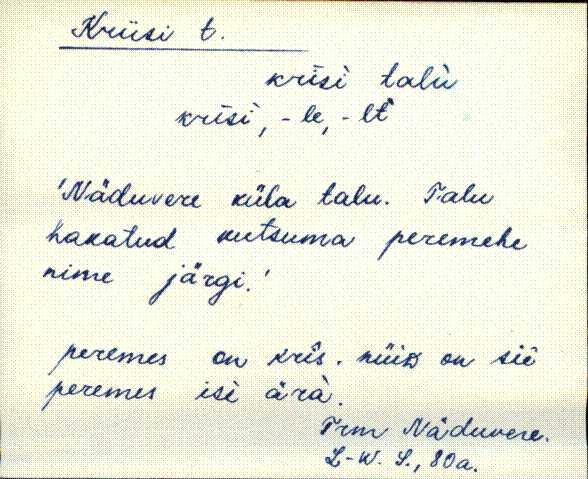 Kriisi t.
krīsì talù
krīsì, -le, -lt
'Näduvere küla talu. Talu
hakatud kutsuma peremehe
nime järgi.'
peremes on krîs. nüiD on siè
peremes isè ärà.
Trm Näduvere.
L-W. S., 80a.